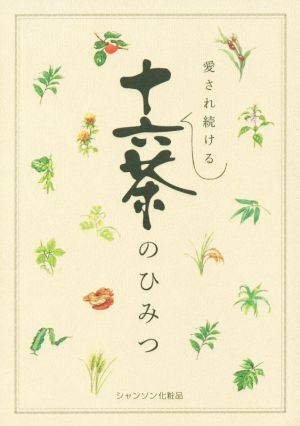 愛され続ける
十六茶
のひみつ
シャンソン化粧品